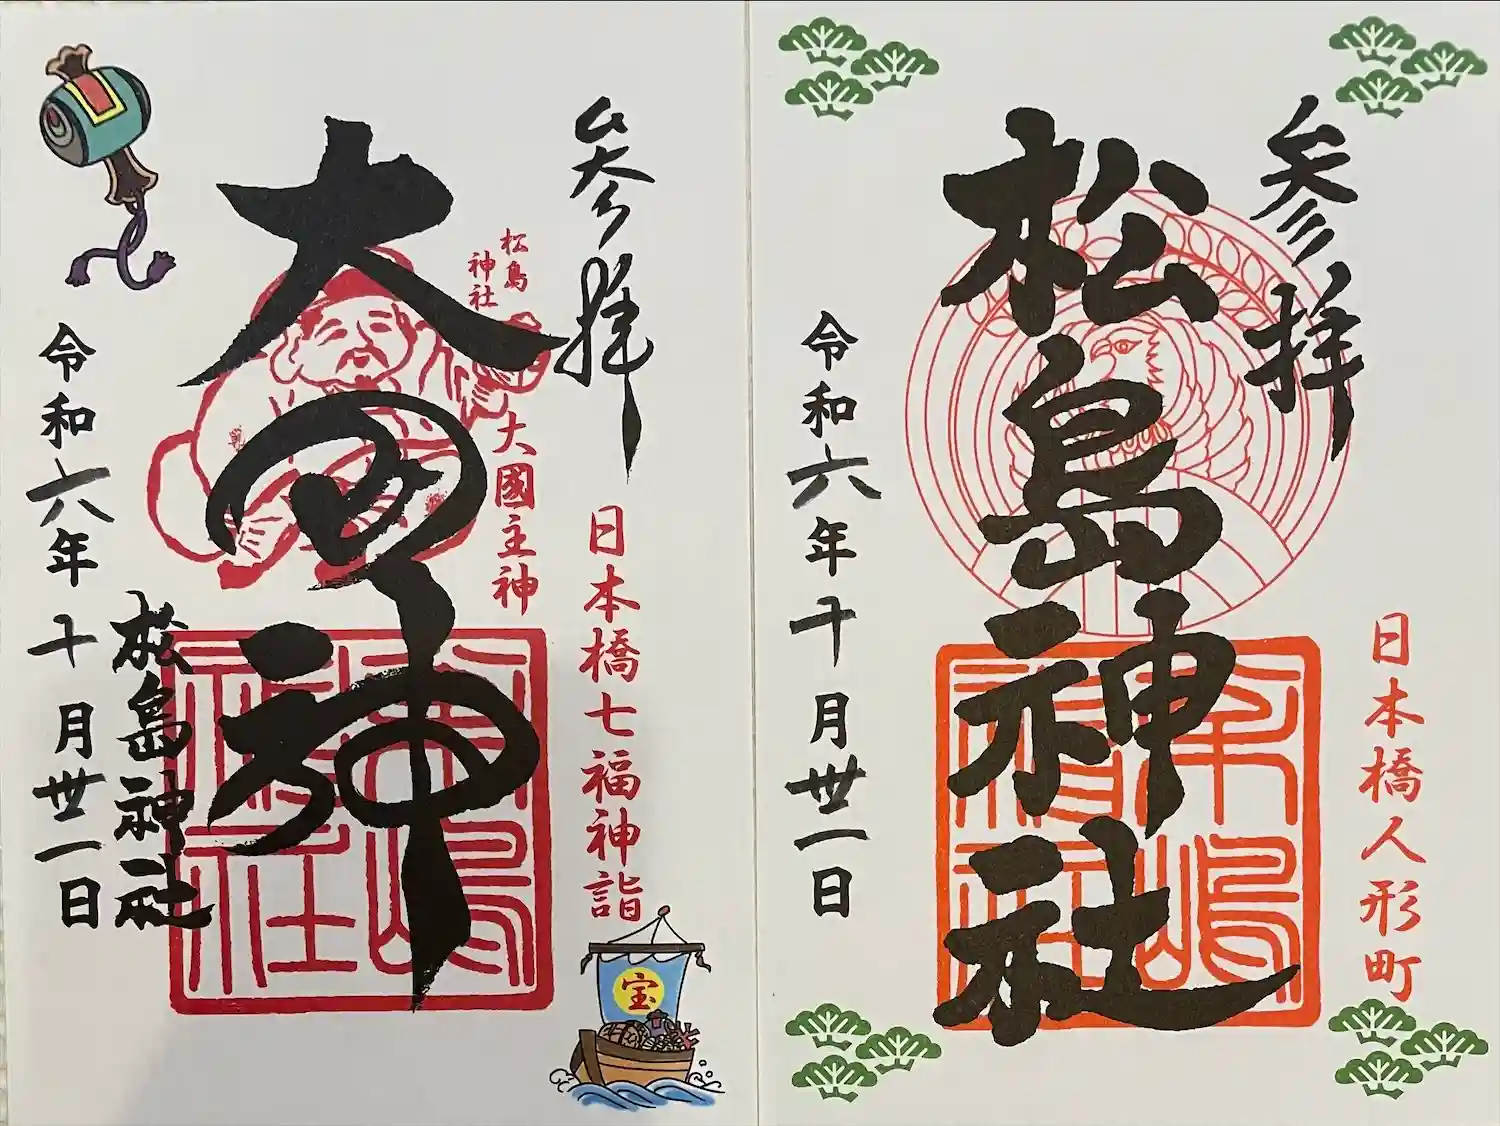 参拝
日本橋人形町
松島神社
令和六年十月丗一日
参拝
日本橋七福神詣
宝
松島
神社
大國主神
大国神
松島神社
令和六年十月丗一日